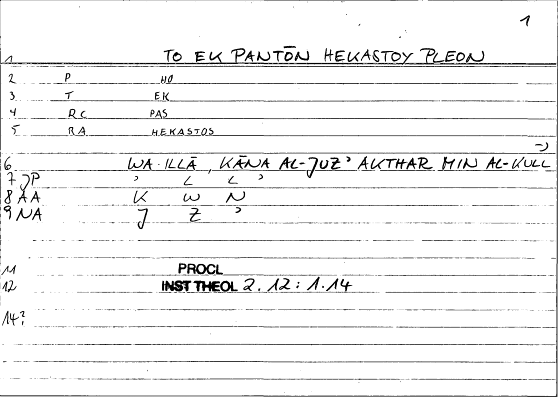 1
1 TO EK PANTŌN HEKASTOY PLEON
2 P HO
3 T EK
4 RC PAS
5 RA HEKASTOS
6 WA-ILLĀ, KĀNA AL-JUZ' AKTHAR MIN AL-KULL
7 JP ' L L '
8 AA K W N
9 NA J Z '
11 PROCL
12 INST THEOL 2.12:1.14
14?